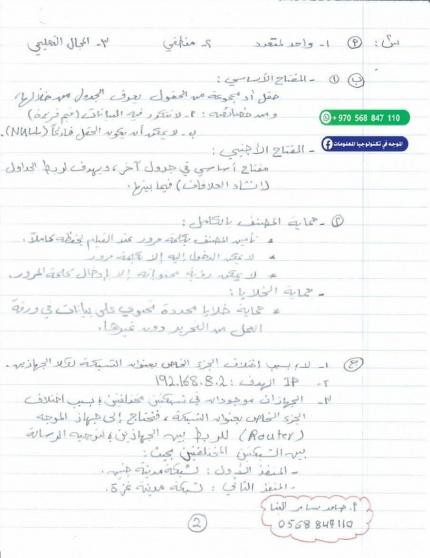 س: (P) 1- واحد لمتعدد 2- منطقي 3- المجال التعليمي
(ب) (1) - المفتاح الأساسي:
حقل أو مجموعة من الحقول يعرف الجدول من خلالها
ومن خصائصه: P- لا تتكرر فيه البيانات (قيم فريدة)
ب- لا يمكن أن يكون الحقل فارغاً (NULL).
+970 568 847 110
الموجه في تكنولوجيا المعلومات
- المفتاح الأجنبي:
مفتاح أساسي في جدول آخر، ويهدف لربط الجداول
(إنشاء العلاقات) فيما بينها.
(2) - حماية المصنف بالكامل:
* تأمين المصنف بكلمة مرور عند القيام بحفظه كاملاً.
* لا يمكن الدخول إليه إلا بكلمة مرور
* لا يمكن رؤية محتوياته إلا بإدخال كلمة المرور.
- حماية الخلايا:
* حماية خلايا محددة تحتوي على بيانات في ورقة
العمل من التحرير دون غيرها.
(ع) 1- لا، بسبب اختلاف الجزء الخاص بعنوان الشبكة لكلا الجهازين.
2- IP الهدف: 192.168.8.2
3- الجهازان موجودان في شبكتين مختلفتين؛ بسبب اختلاف
الجزء الخاص بعنوان الشبكة، فنحتاج إلى جهاز الموجه
(Router) للربط بين الجهازين؛ لتوجيه الرسالة
بين الشبكتين المختلفتين بحيث:
- المنفذ الأول: لشبكة مدينة جنين.
- المنفذ الثاني: لشبكة مدينة غزة.
(2)
أ. حامد سامر
0568847110